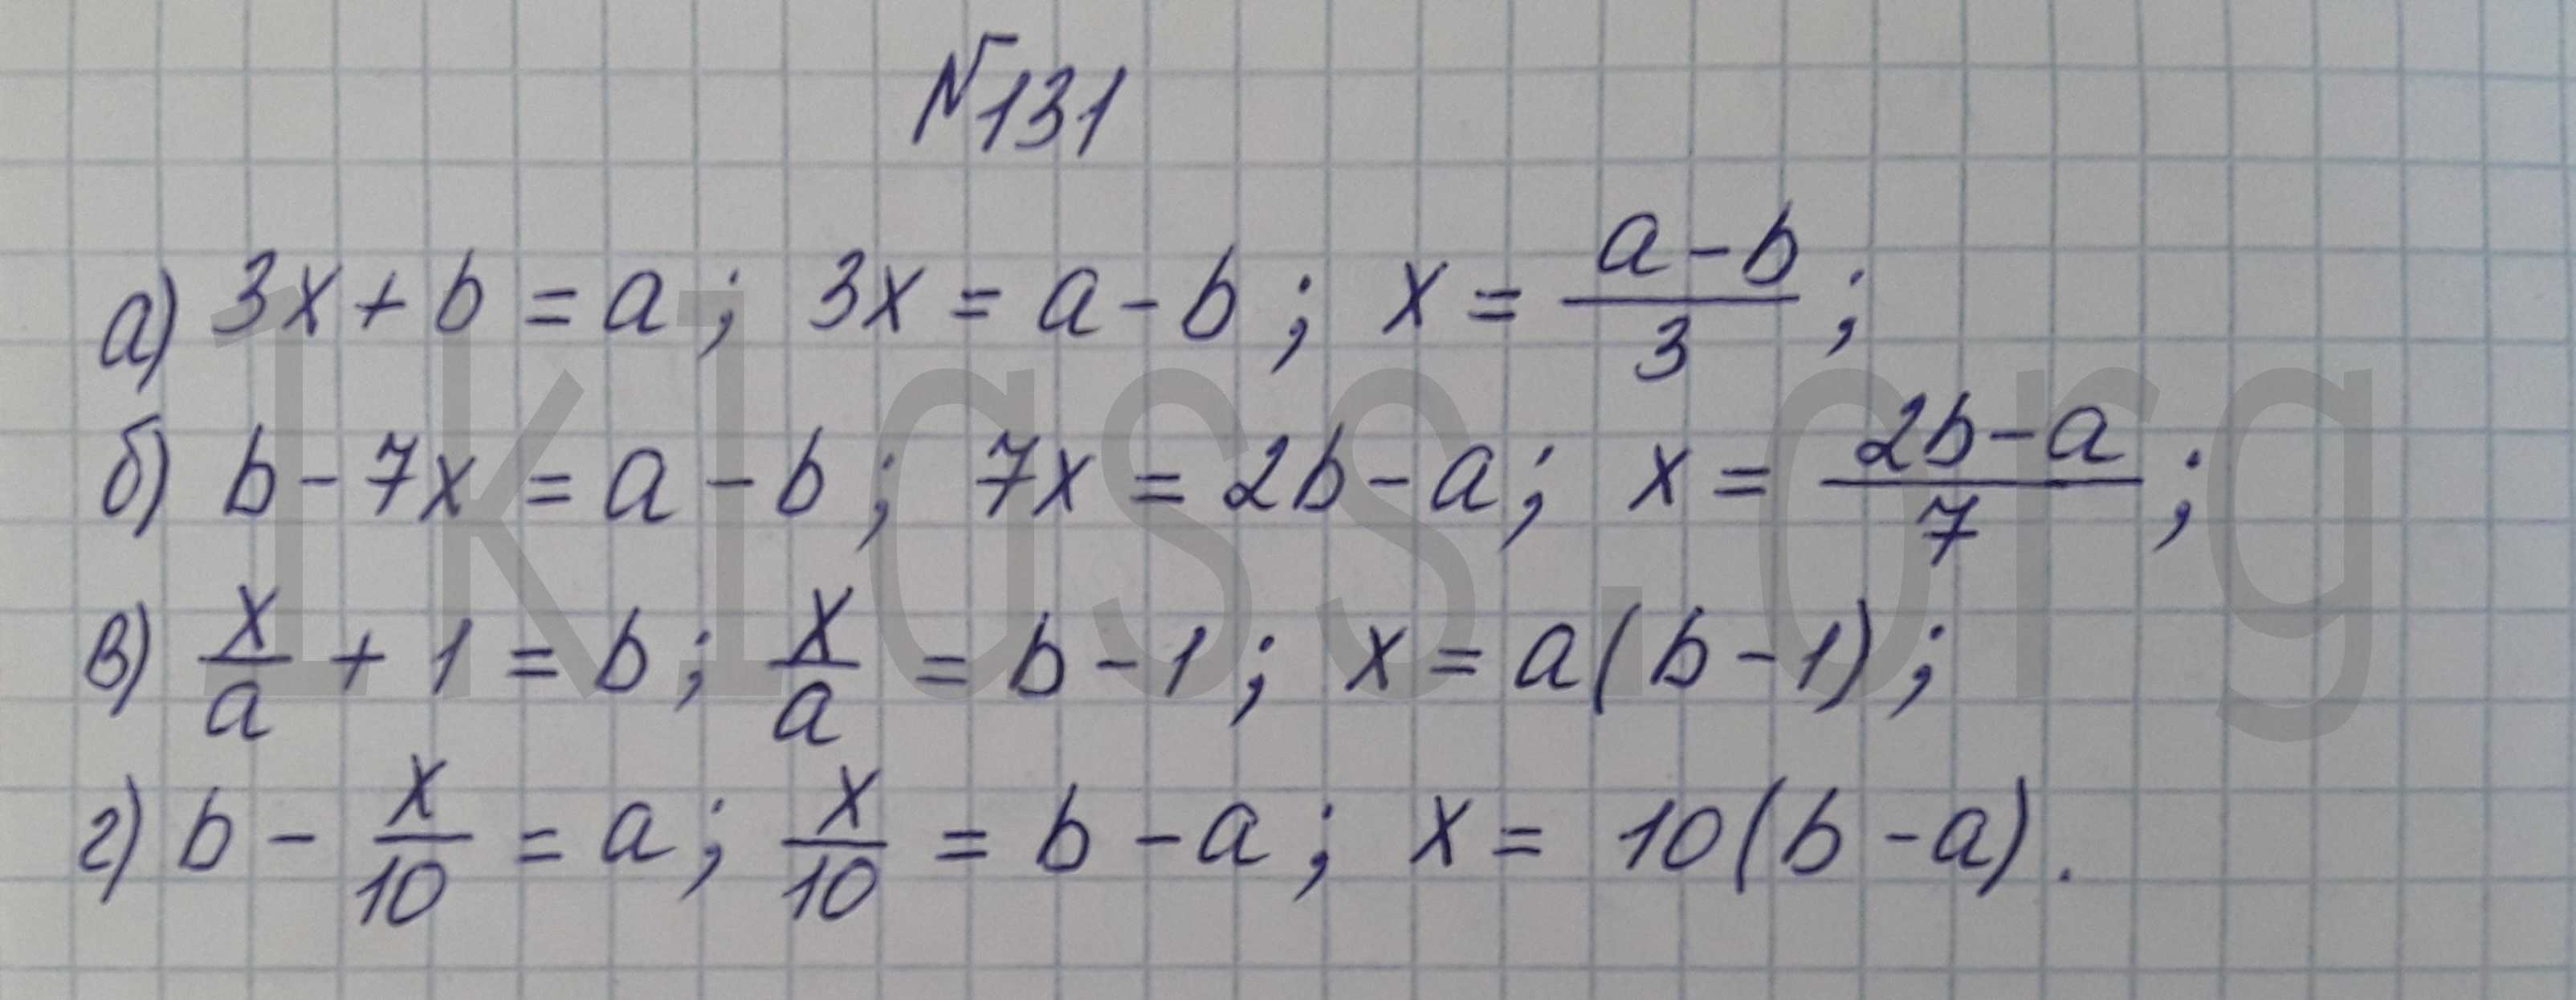 №131
а) 3x + b = a; 3x = a - b; x = \frac{a-b}{3};
б) b - 7x = a - b; 7x = 2b - a; x = \frac{2b-a}{7};
в) \frac{x}{a} + 1 = b; \frac{x}{a} = b - 1; x = a(b - 1);
г) b - \frac{x}{10} = a; \frac{x}{10} = b - a; x = 10(b - a).
1klass.org